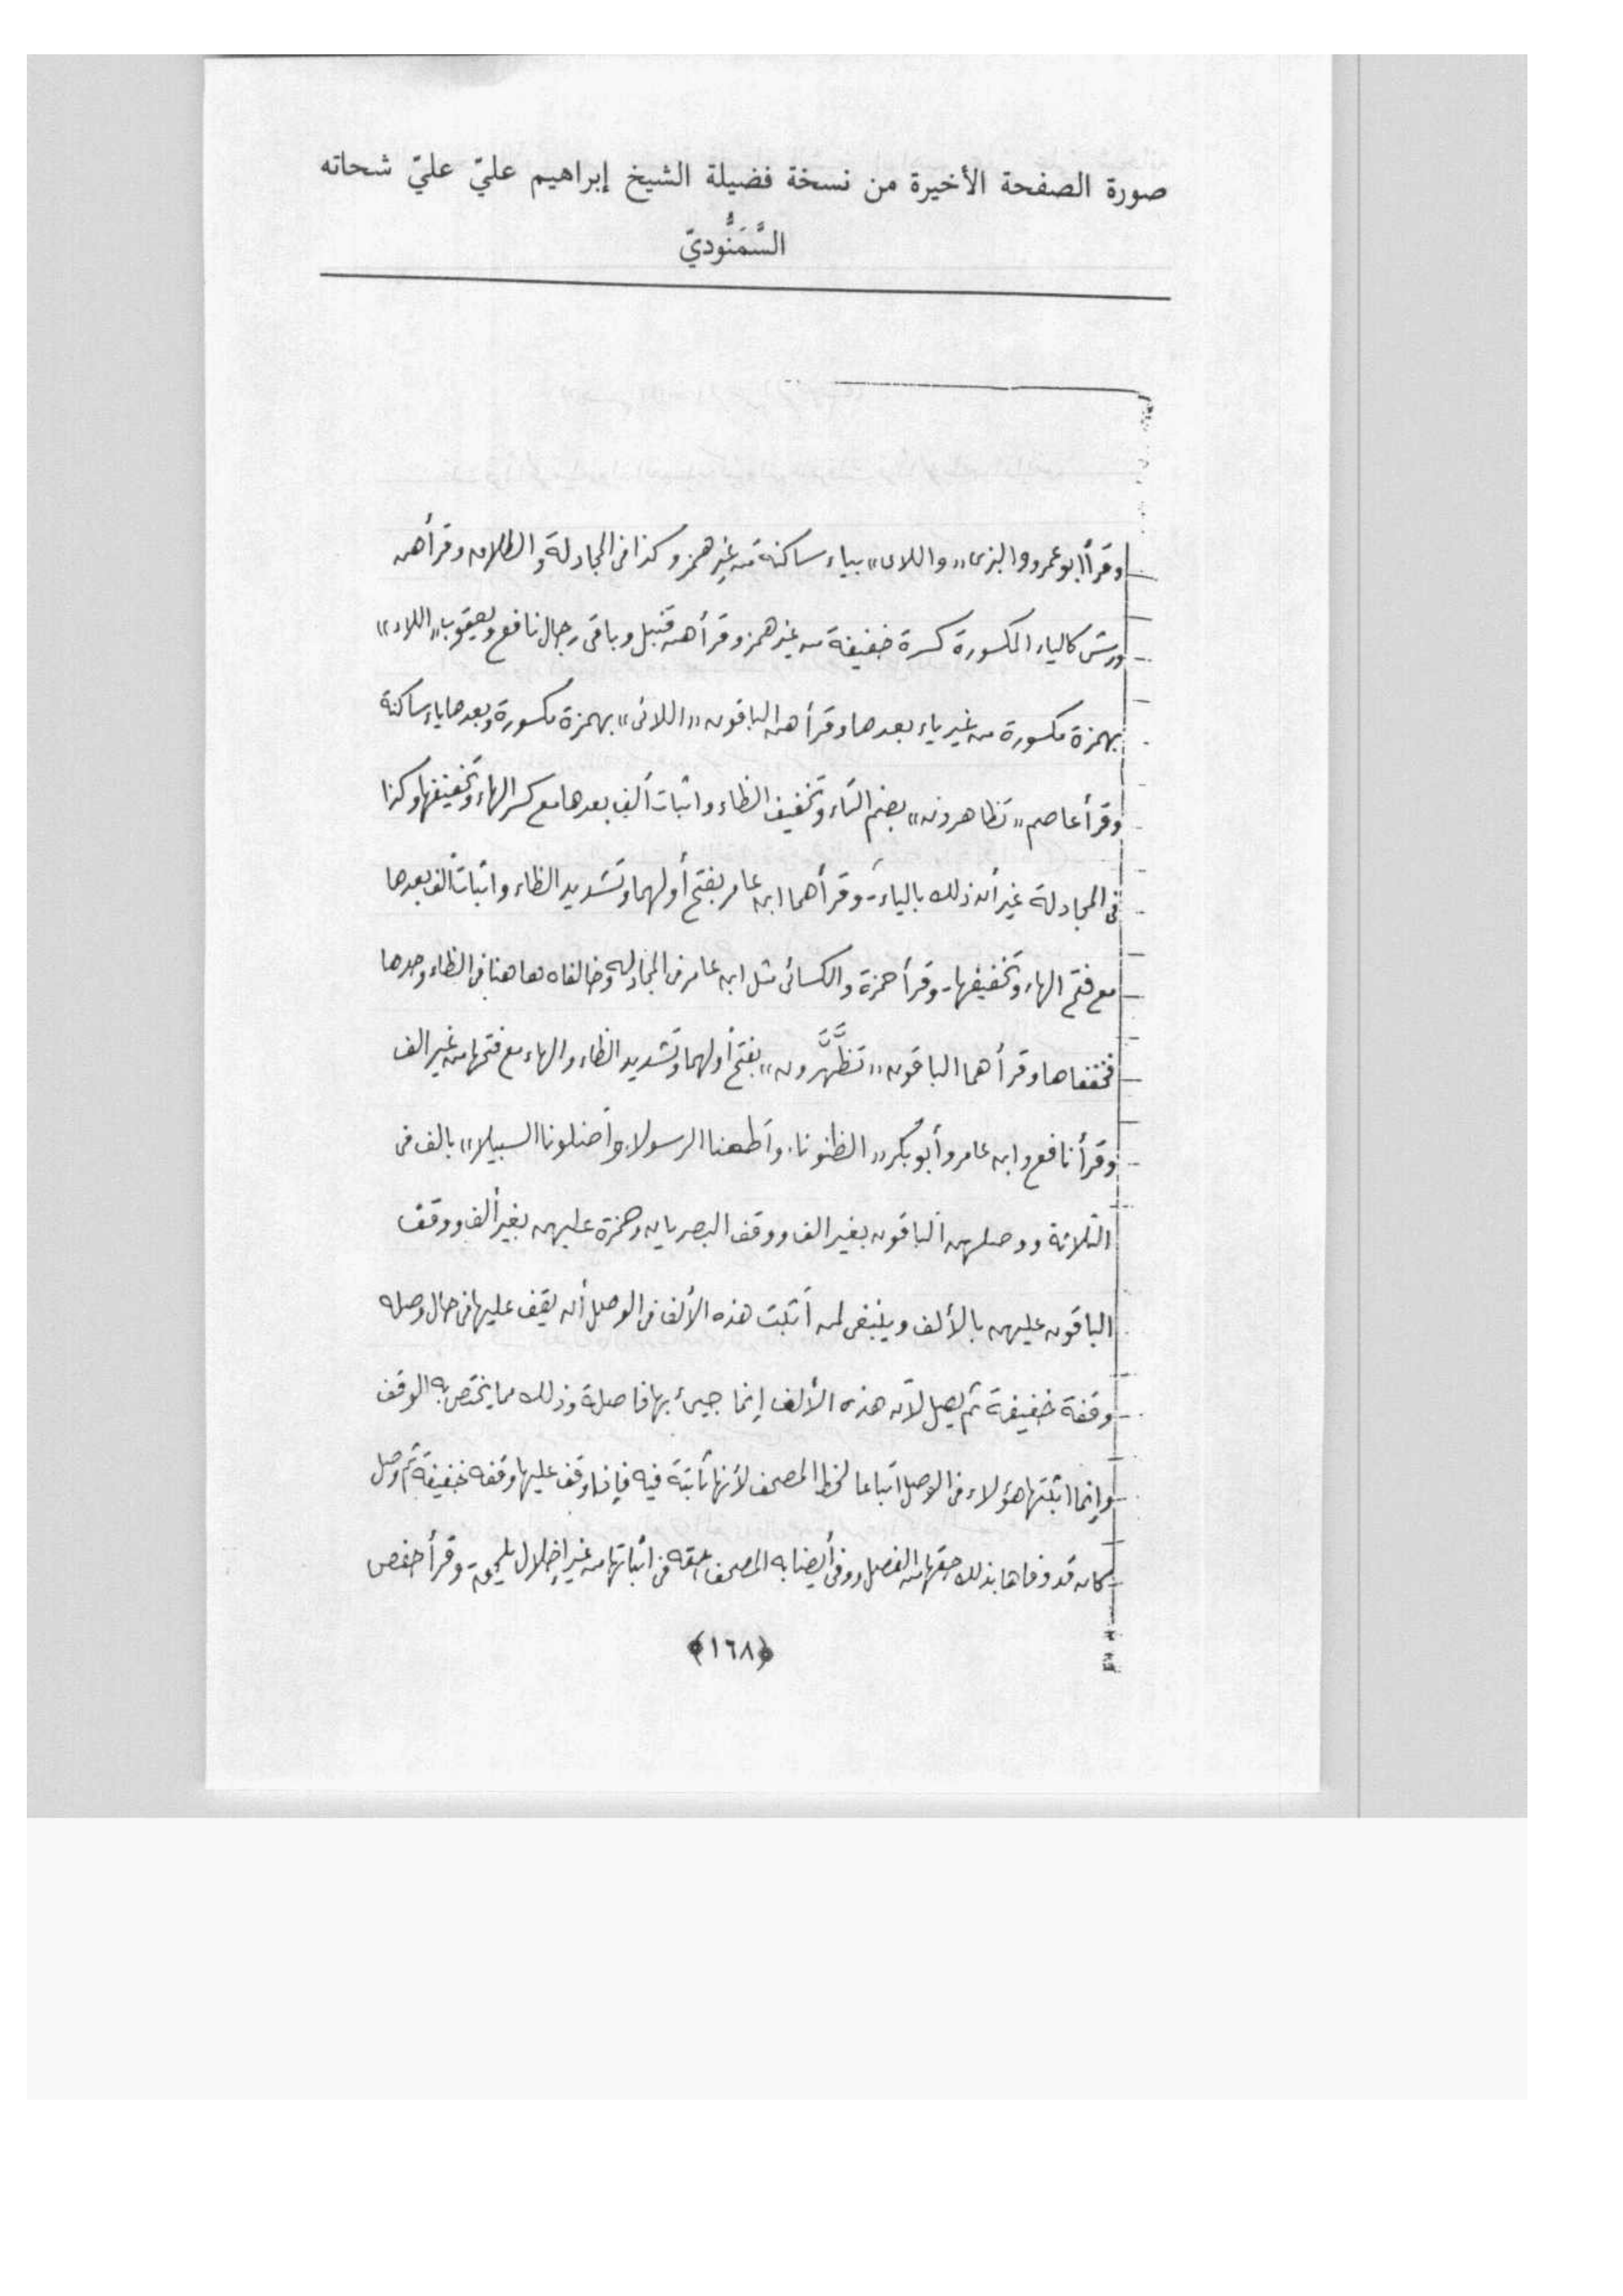 صورة الصفحة الأخيرة من نسخة فضيلة الشيخ إبراهيم عليّ عليّ شحاته
السَّمَنُّوديّ
وقرأ أبو عمرو والبزى «واللاى» بياء ساكنة من غير همز وكذا فى المجادلة والطلاق وقرأهن
ورش كالياء المكسورة كسرة خفيفة من غير همز وقرأهن قنبل وباقى رجال نافع ويعقوب «اللاء»
بهمزة مكسورة من غير ياء بعدها وقرأهن الباقون «اللائى» بهمزة مكسورة وبعدها ياء ساكنة
وقرأ عاصم «تظاهرون» بضم التاء وتخفيف الظاء واثبات ألف بعدها مع كسر الهاء وتخفيفها وكذا
فى المجادلة غير أن ذلك بالياء - وقرأهما ابن عامر بفتح أولهما وتشديد الظاء واثبات ألف بعدها
مع فتح الهاء وتخفيفها - وقرأ حمزة والكسائى مثل ابن عامر فى المجادله وخالفاه هاهنا فى الظاء وحدها
فخففاها وقرأهما الباقون «تظَّهَّرون» بفتح أولهما وتشديد الظاء والهاء مع فتحها من غير الف
وقرأ نافع وابن عامر وأبو بكر «الظنونا، وأطعنا الرسولا، وأضلونا السبيلا» بالف فى
الثلاثة ووصلهن الباقون بغير الف ووقف البصريان وحمزة عليهن بغير ألف ووقف
الباقون عليهن بالألف وينبغى لمن أثبت هذه الألف فى الوصل أن يقف عليها فى حال وصله
وقفة خفيفة ثم يصل لأن هذه الألف إنما جيئ بها فاصلة وذلك مما يختص به الوقف
وإنما اثبتها هؤلاء فى الوصل اتباعا لخط المصحف لأنها ثابتة فيه فإذا وقف عليها وقفه خفيفة ثم وصل
كان قد وفاها بذلك حقها من الفصل ووفى أيضا به المصحف حقه فى اثباتها من غير إخلال وقرأ حفص
﴿١٦٨﴾